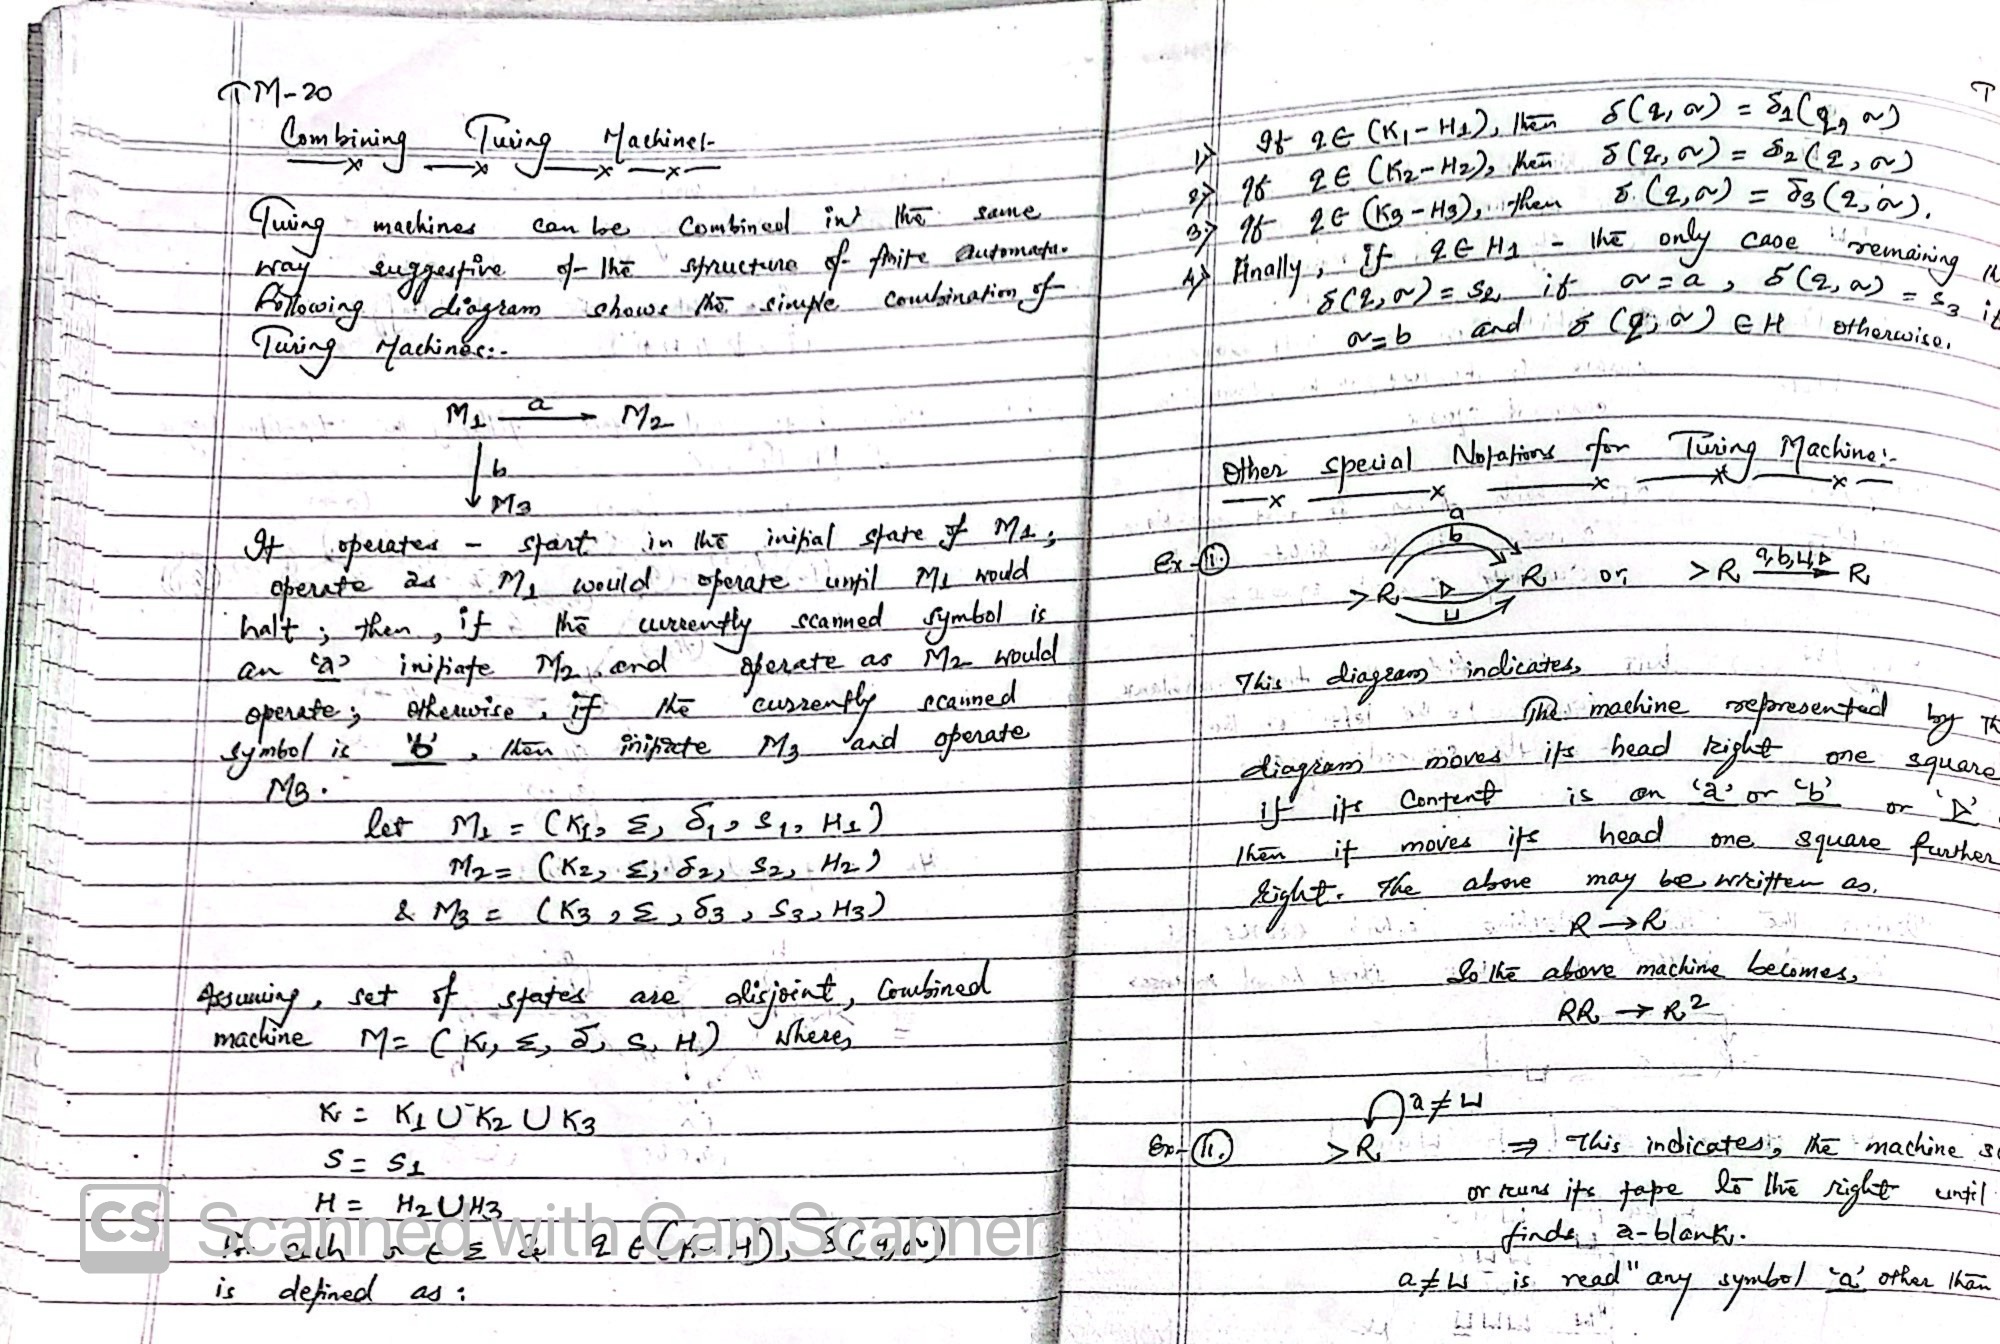 TM-20
Combining Turing Machines:-
Turing machines can be combined in the same
way suggestive of the structure of finite automata.
Following diagram shows the simple combination of
Turing Machines:-
M1 a → M2
↓ b
M3
It operates - start in the initial state of M1;
operate as M1 would operate until M1 would
halt; then, if the currently scanned symbol is
an 'a' initiate M2 and operate as M2 would
operate; otherwise, if the currently scanned
symbol is 'b', then initiate M3 and operate
M3.
let M1 = (K1, Σ, δ1, S1, H1)
M2 = (K2, Σ, δ2, S2, H2)
& M3 = (K3, Σ, δ3, S3, H3)
Assuming, set of states are disjoint, Combined
machine M = (K, Σ, δ, S, H) where,
K = K1 ∪ K2 ∪ K3
S = S1
H = H2 ∪ H3
For each σ ∈ Σ & q ∈ (K-H), δ(q,σ)
is defined as:
CS Scanned with CamScanner
1) If q ∈ (K1-H1), then δ(q,σ) = δ1(q,σ)
2) If q ∈ (K2-H2), then δ(q,σ) = δ2(q,σ)
3) If q ∈ (K3-H3), then δ(q,σ) = δ3(q,σ).
4) Finally, if q ∈ H1 - the only case remaining
δ(q,σ) = S2 if σ=a, δ(q,σ) = S3 if
σ=b and δ(q,σ) ∈ H otherwise.
Other special Notations for Turing Machine:-
Ex-(i.) >R a b ▷ ⊔ R or, >R a,b,⊔,▷ → R
This diagram indicates,
The machine represented by
diagram moves its head right one square
if its Content is an 'a' or 'b' or '▷'
then it moves its head one square further
right. The above may be written as,
R → R
So the above machine becomes,
RR → R²
Ex-(ii.) >R a≠⊔ ⇒ This indicates, the machine
or runs its tape to the right until
finds a-blank.
a≠⊔ is read "any symbol 'a' other than